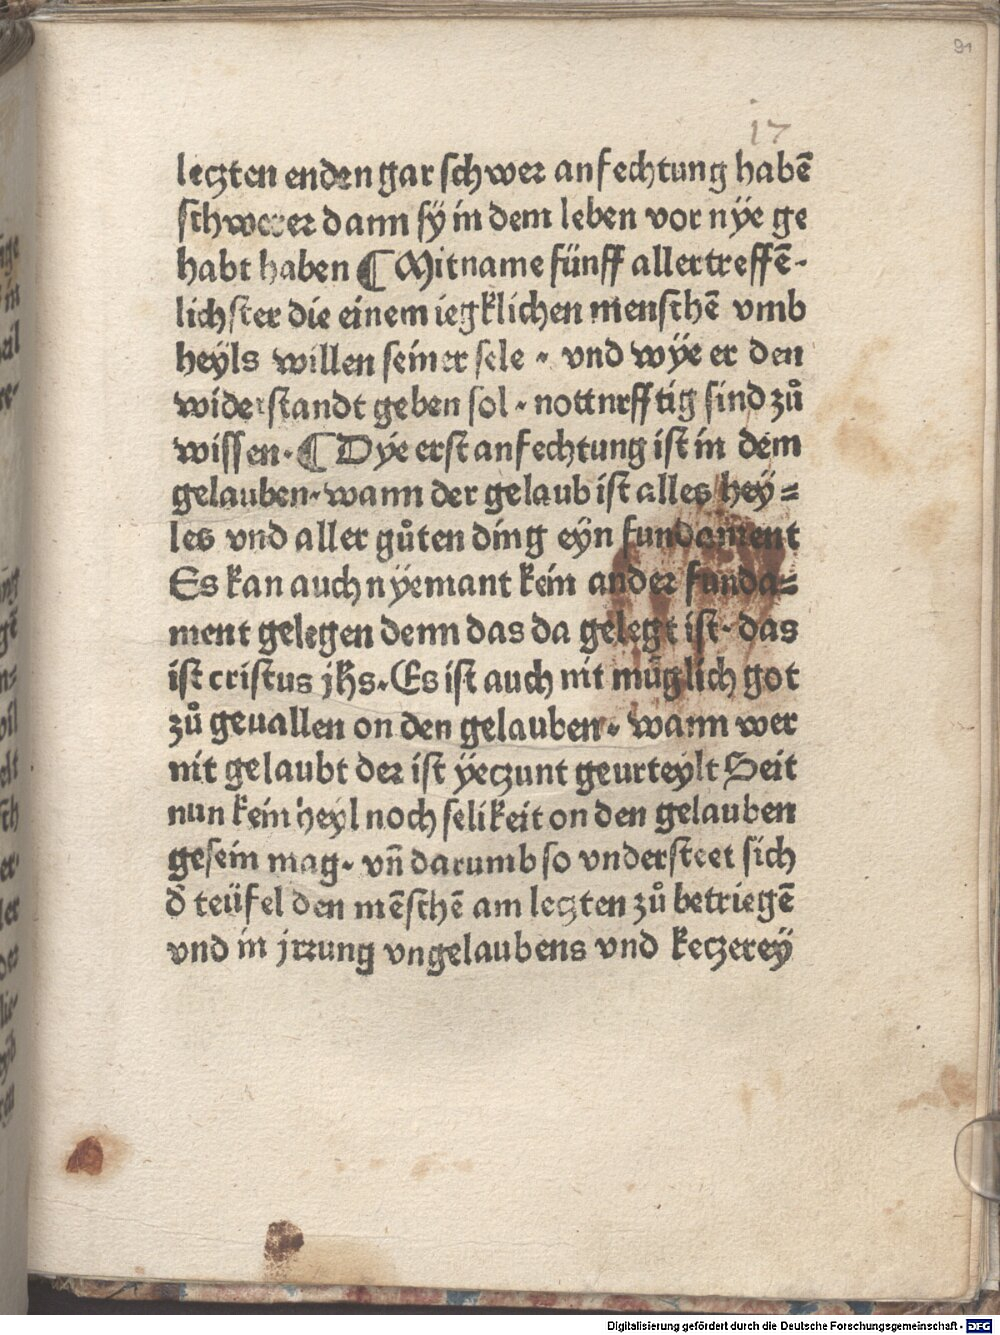 91
17
leczten enden gar schwer anfechtung habē
schwerer dann sÿ in dem leben vor nÿe ge
habt haben ¶ Mitname fünff allertreffē-
lichster die einem iegklichen menschē vmb
heÿls willen seiner sele · vnd wÿe er den
widerstandt geben sol · nottnrfftig sind zů
wissen · ¶ Dÿe erst anfechtung ist in dem
gelauben · wann der gelaub ist alles heÿ=
les vnd aller gůten ding eÿn fundament
Es kan auch nÿemant kein ander funda=
ment gelegen denn das da gelegt ist · das
ist cristus jhs. Es ist auch nit müglich got
zů geuallen on den gelauben · wann wer
nit gelaubt der ist ÿeczunt geurteylt Seit
nun kein heyl noch selikeit on den gelauben
gesein mag · vn̄ darumb so vndersteet sich
d̄ teüfel den mēschē am leczten zů betriegē
vnd in jrrung vngelaubens vnd keczereÿ
Digitalisierung gefördert durch die Deutsche Forschungsgemeinschaft - DFG